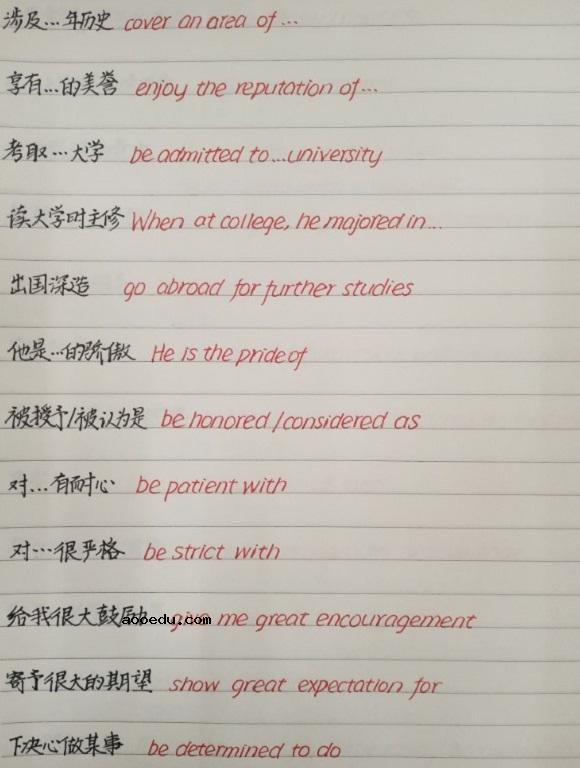 涉及…年历史 cover an area of …
享有…的美誉 enjoy the reputation of…
考取…大学 be admitted to…university
读大学时主修 When at college, he majored in…
出国深造 go abroad for further studies
他是…的骄傲 He is the pride of
被授予/被认为是 be honored/considered as
对…有耐心 be patient with
对…很严格 be strict with
给我很大鼓励 give me great encouragement
aooedu.com
寄予很大的期望 show great expectation for
下决心做某事 be determined to do